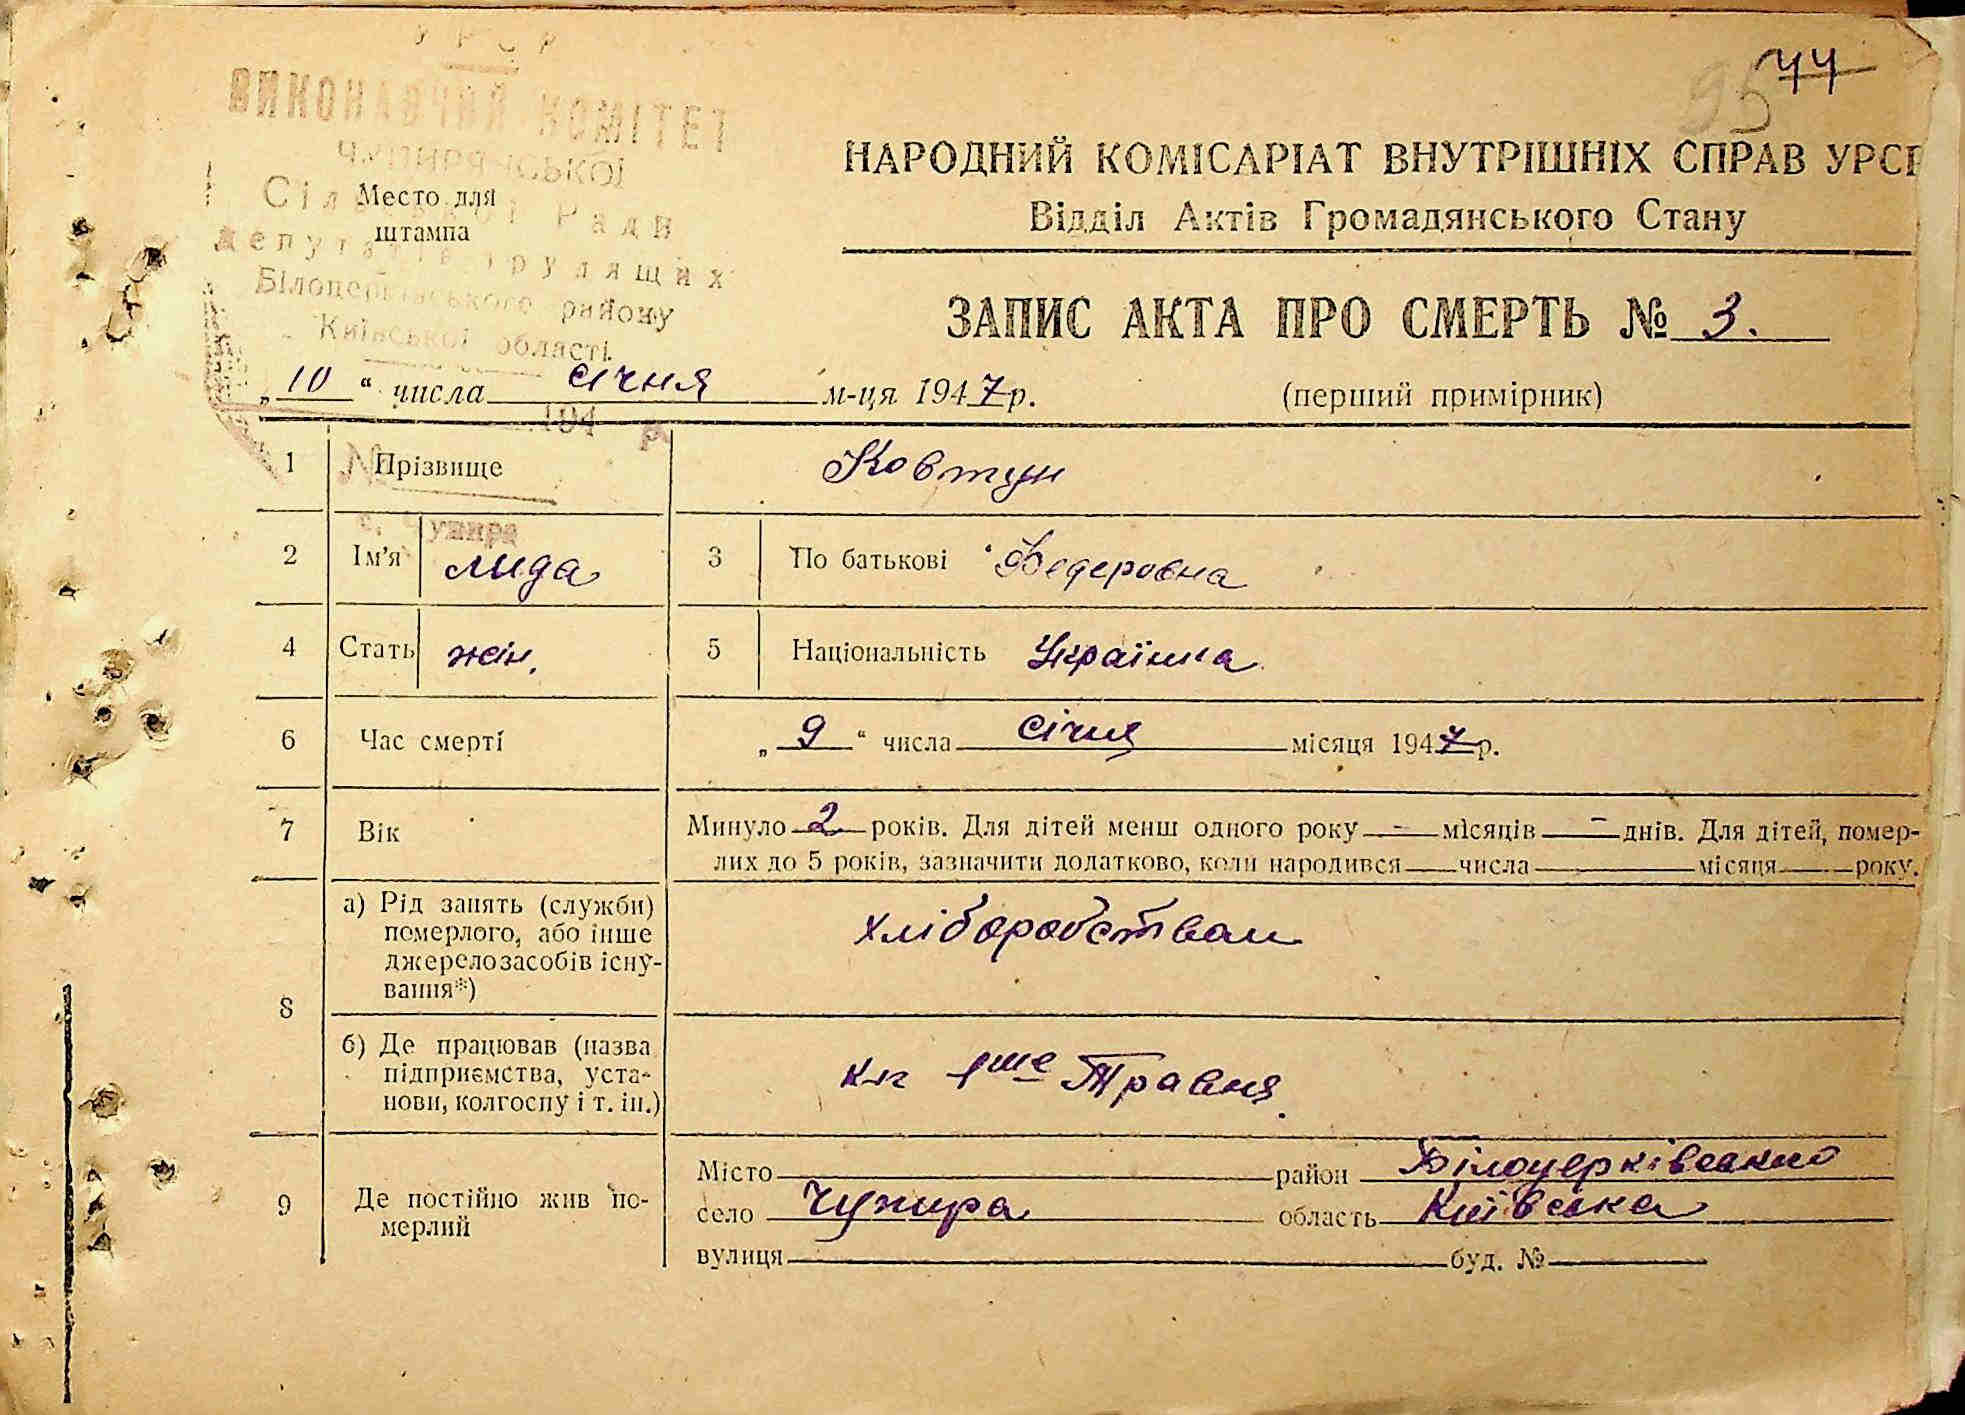 УРСР
ВИКОНАВЧИЙ КОМІТЕТ
ЧУПИРЯНСЬКОЇ
Сільської Ради
депутатів трудящих
Білоцерківського району
Київської області
194 р
№
с. Чупира
Место для
штампа
95 44
НАРОДНИЙ КОМІСАРІАТ ВНУТРІШНІХ СПРАВ УРСР
Відділ Актів Громадянського Стану
ЗАПИС АКТА ПРО СМЕРТЬ № 3.
„10“ числа січня м-ця 1947 р.
(перший примірник)
1 Прізвище Ковтун
2 Ім'я лида 3 По батькові Федеровна
4 Стать жін. 5 Національність Українка
6 Час смерті „9“ числа січня місяця 1947 р.
7 Вік Минуло 2 років. Для дітей менш одного року - місяців - днів. Для дітей, помер-
лих до 5 років, зазначити додатково, коли народився числа місяця року.
8 а) Рід занять (служби)
померлого, або інше
джерело засобів існу-
вання*)
хліборобством
б) Де працював (назва
підприємства, уста-
нови, колгоспу і т. ін.)
кг 1ше Травня.
9 Де постійно жив по-
мерлий
Місто район Білоцерківського
село Чупира область Київська
вулиця буд. №